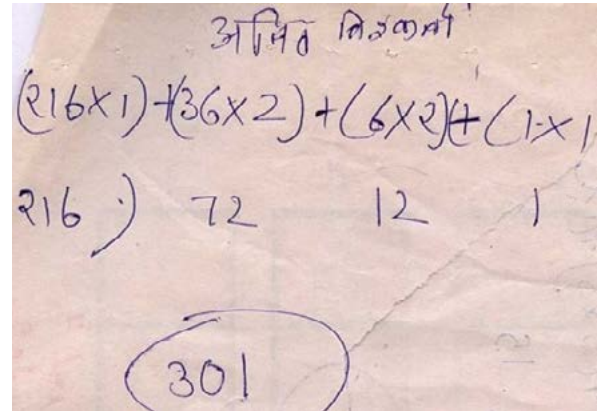 अजित विश्वकर्मा
(216×1)+(36×2)+(6×2)(+(1×1
216 ) 72 12 1
301